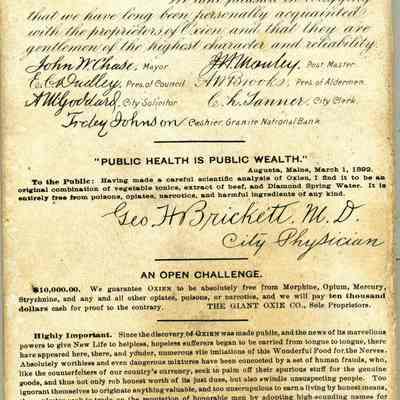 that we have long been personally acquainted
with the proprietors of Oxien, and that they are
gentlemen of the highest character and reliability.
John W Chase, Mayor J H Manley, Post Master.
E. C. Dudley, Pres. of Council A W Brooks, Pres. of Aldermen.
A M Goddard, City Solicitor C. L. Tanner, City Clerk.
Treby Johnson Cashier, Granite National Bank
"PUBLIC HEALTH IS PUBLIC WEALTH."
Augusta, Maine, March 1, 1892.
To the Public: Having made a careful scientific analysis of Oxien, I find it to be an
original combination of vegetable tonics, extract of beef, and Diamond Spring Water. It is
entirely free from poisons, opiates, narcotics, and harmful ingredients of any kind.
Geo H Brickett, M. D.
City Physician
AN OPEN CHALLENGE.
$10,000.00. We guarantee OXIEN to be absolutely free from Morphine, Opium, Mercury,
Strychnine, and any and all other opiates, poisons, or narcotics, and we will pay ten thousand
dollars cash for proof to the contrary. THE GIANT OXIE CO., Sole Proprietors.
Highly Important. Since the discovery of OXIEN was made public, and the news of its marvellous
powers to give New Life to helpless, hopeless sufferers began to be carried from tongue to tongue, there
have appeared here, there, and yonder, numerous vile imitations of this Wonderful Food for the Nerves.
Absolutely worthless and even dangerous mixtures have been concocted by a set of human frauds, who,
like the counterfeiters of our country's currency, seek to palm off their spurious stuff for the genuine
goods, and thus not only rob honest worth of its just dues, but also swindle unsuspecting people. Too
ignorant themselves to originate anything valuable, and too unscrupulous to earn a living by honest means,
reputation of honorable men by adopting high-sounding names for